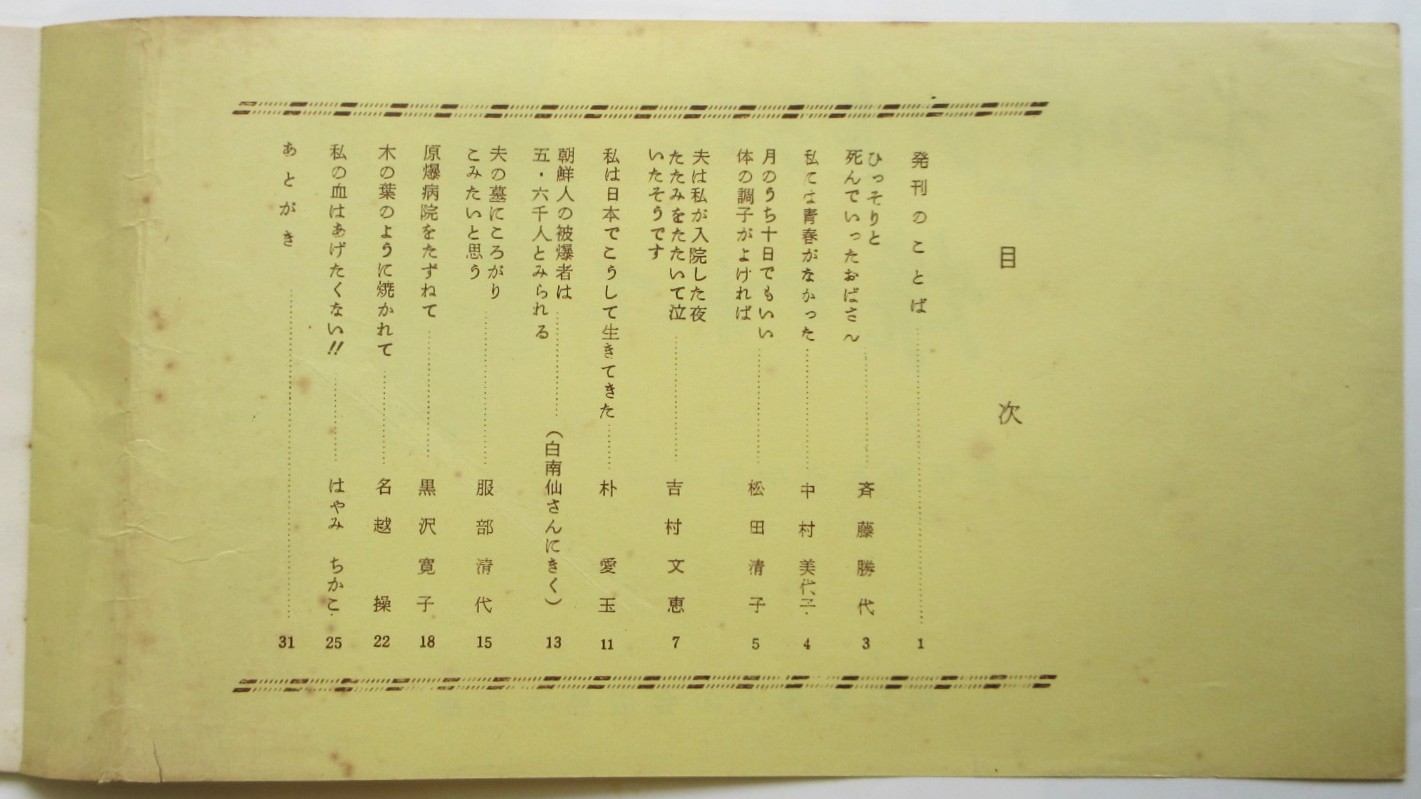 目次
発刊のことば 1
ひっそりと
死んでいったおばさん 斉藤勝代 3
私には青春がなかった 中村美代子 4
月のうち十日でもいい
体の調子がよければ 松田清子 5
夫は私が入院した夜
たたみをたたいて泣
いたそうです 吉村文恵 7
私は日本でこうして生きてきた 朴愛玉 11
朝鮮人の被爆者は
五・六千人とみられる (白南仙さんにきく) 13
夫の墓にころがり
こみたいと思う 服部清代 15
原爆病院をたずねて 黒沢寛子 18
木の葉のように焼かれて 名越操 22
私の血はあげたくない!! はやみちかこ 25
あとがき 31